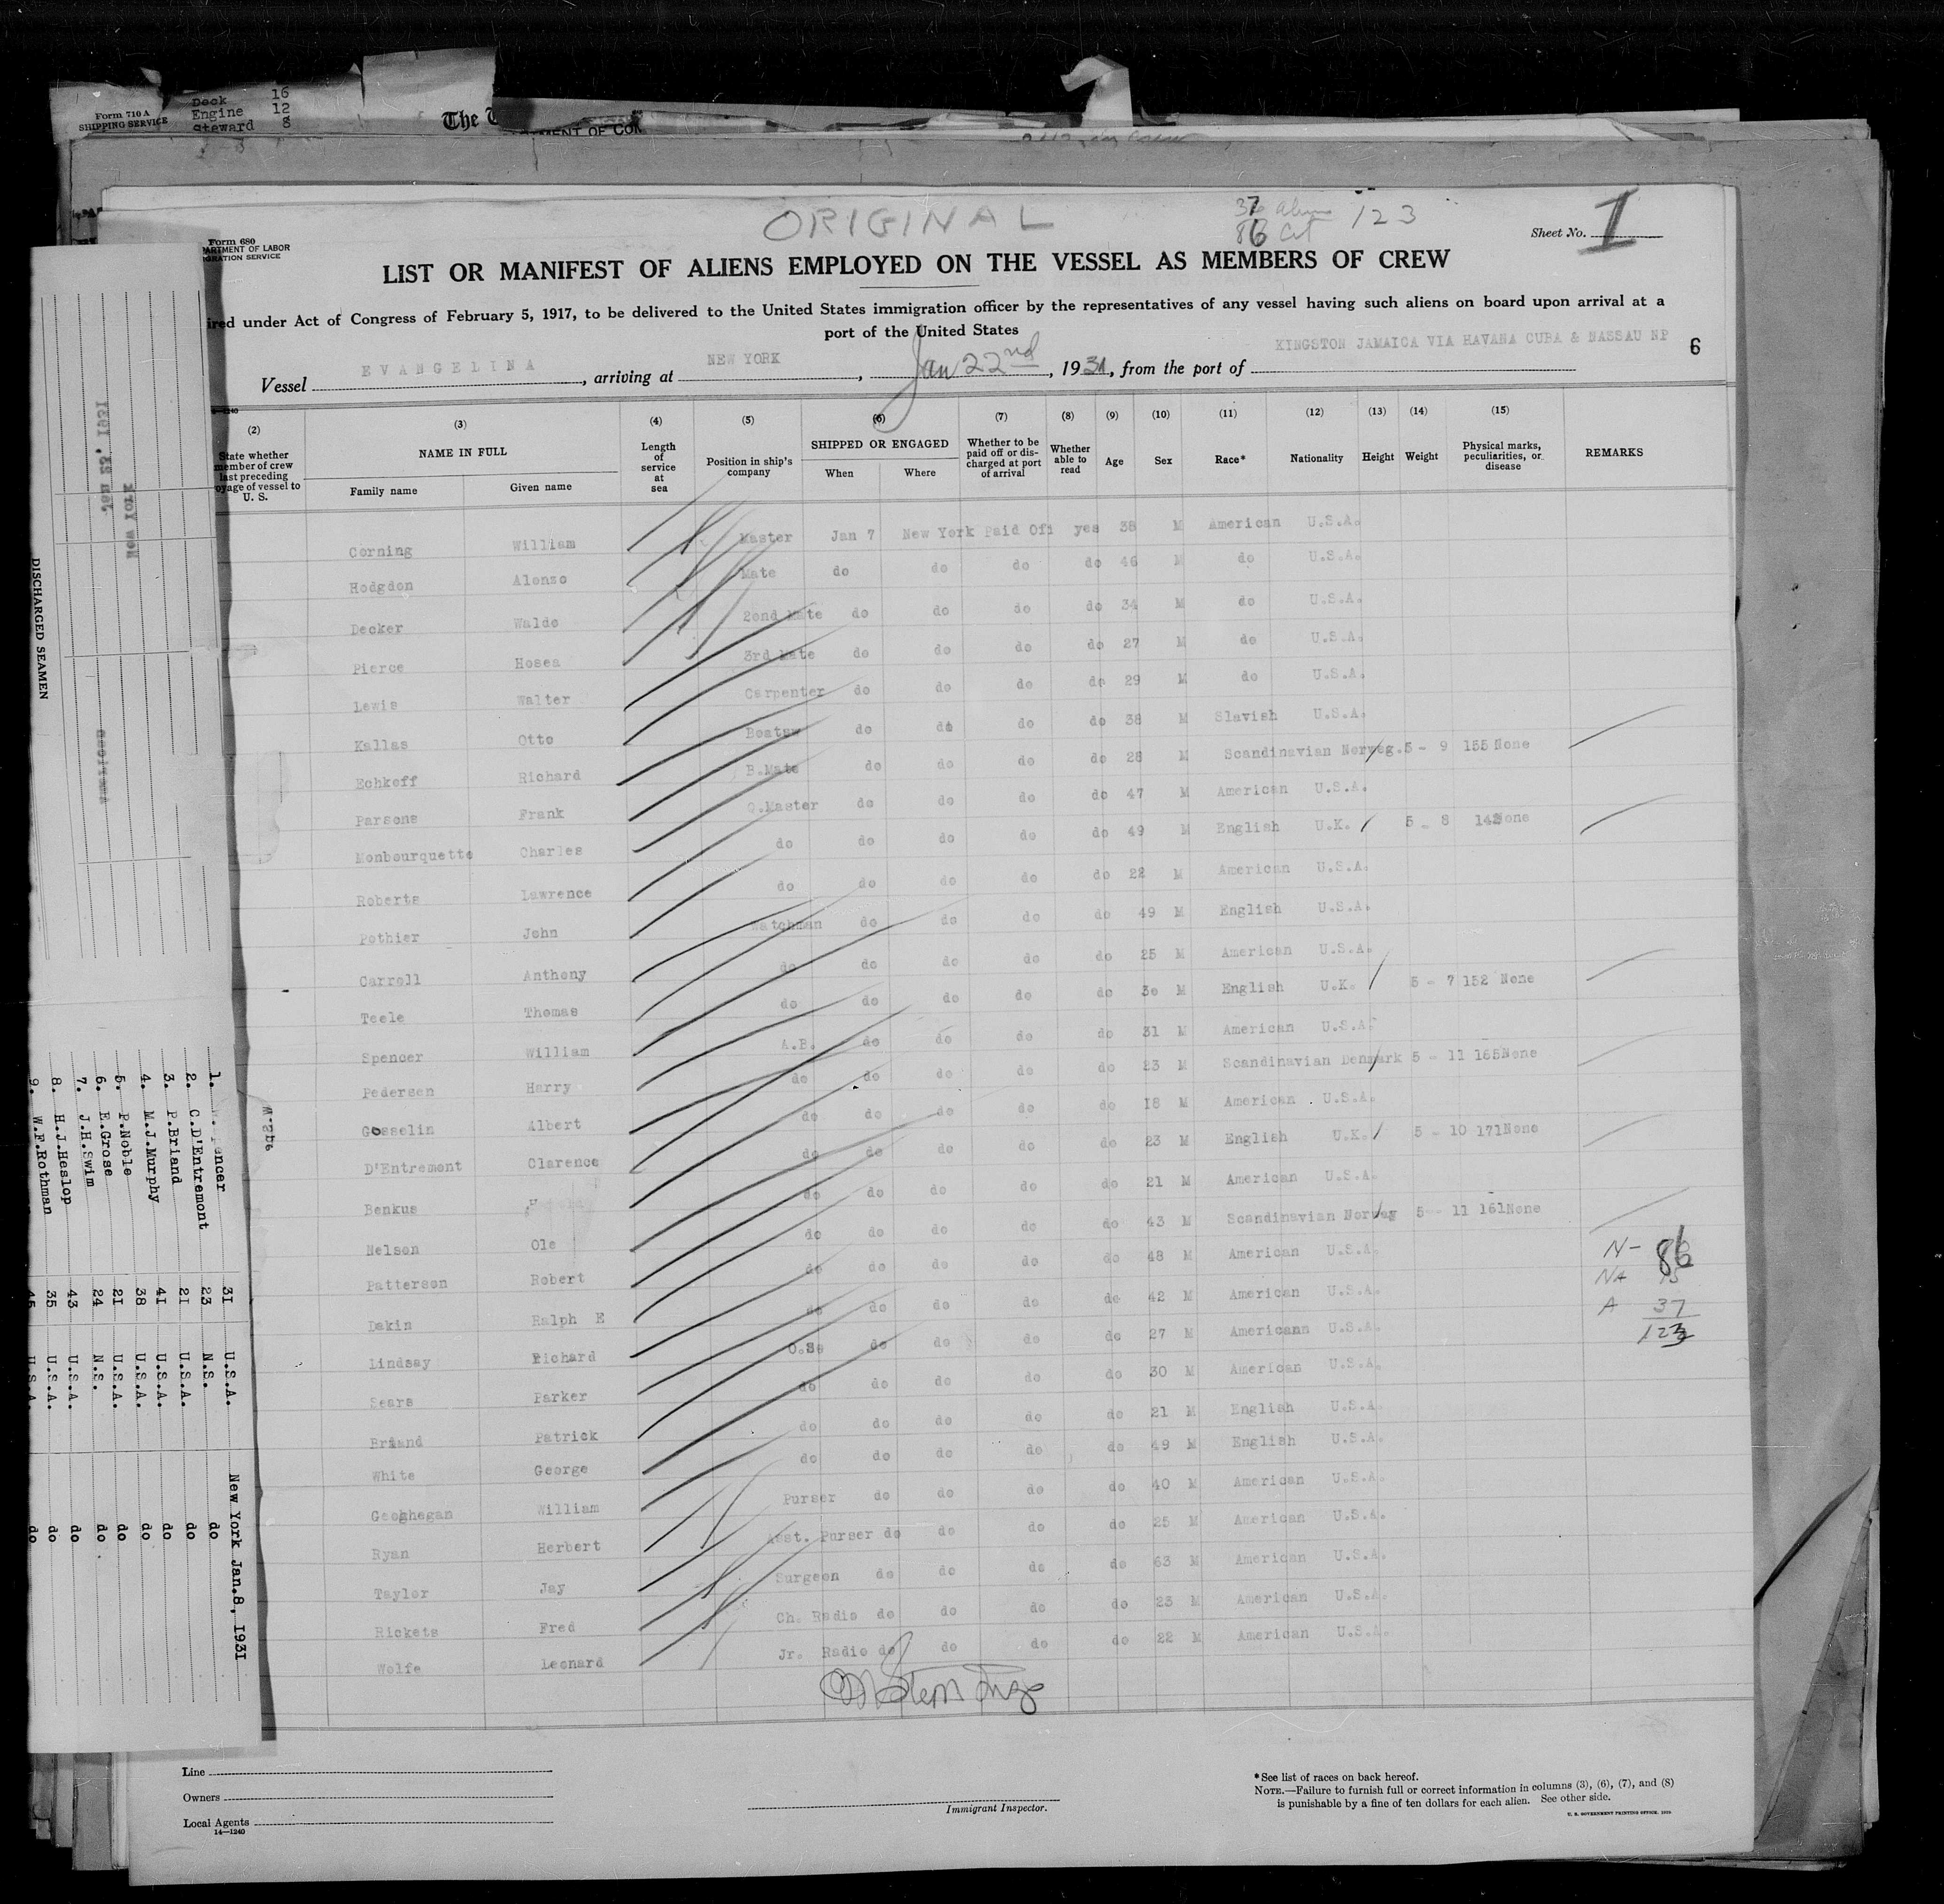 Form 710 A
SHIPPING SERVICE
Deck 16
Engine 12
Steward 8
The
MENT OF COM
ORIGINAL
37 123
86
Form 680
ARTMENT OF LABOR
IGRATION SERVICE
Sheet No. 1
LIST OR MANIFEST OF ALIENS EMPLOYED ON THE VESSEL AS MEMBERS OF CREW
ired under Act of Congress of February 5, 1917, to be delivered to the United States immigration officer by the representatives of any vessel having such aliens on board upon arrival at a
port of the United States
Vessel EVANGELINA, arriving at NEW YORK, Jan 22nd, 1931, from the port of KINGSTON JAMAICA VIA HAVANA CUBA & NASSAU NP
6
(2) (3) (4) (5) (6) (7) (8) (9) (10) (11) (12) (13) (14) (15)
State whether member of crew last preceding oyage of vessel to U. S.
NAME IN FULL
Family name
Given name
Length of service at sea
Position in ship's company
SHIPPED OR ENGAGED
When
Where
Whether to be paid off or discharged at port of arrival
Whether able to read
Age
Sex
Race*
Nationality
Height
Weight
Physical marks, peculiarities, or disease
REMARKS
Corning William Master Jan 7 New York Paid Off yes 38 M American U.S.A.
Hodgdon Alonzo Mate do do do do 46 M do U.S.A.
Decker Waldo 2ond Mate do do do do 34 M do U.S.A.
Pierce Hosea 3rd Mate do do do do 27 M do U.S.A.
Lewis Walter Carpenter do do do do 29 M do U.S.A.
Kallas Otto Boatsw do do do do 38 M Slavish U.S.A.
Echkoff Richard B.Mate do do do do 28 M Scandinavian Norweg. 5 - 9 155 None
Parsons Frank Q.Master do do do do 47 M American U.S.A.
Monbourquette Charles do do do do do 49 M English U.K. 5 - 8 142 None
Roberts Lawrence do do do do do 22 M American U.S.A.
Pothier John Watchman do do do do 49 M English U.S.A.
Carroll Anthony do do do do do 25 M American U.S.A.
Teele Thomas do do do do do 30 M English U.K. 5 - 7 152 None
Spencer William A.B. do do do do 31 M American U.S.A.
Pedersen Harry do do do do do 23 M Scandinavian Denmark 5 - 11 165 None
Gosselin Albert do do do do do 18 M American U.S.A.
D'Entremont Clarence do do do do do 23 M English U.K. 5 - 10 171 None
Benkus do do do do do 21 M American U.S.A.
Nelson Ole do do do do do 43 M Scandinavian Norweg 5 - 11 161 None
Patterson Robert do do do do do 48 M American U.S.A.
Dakin Ralph E do do do do do 42 M American U.S.A.
Lindsay Richard O.S. do do do do 27 M Americann U.S.A.
Sears Parker do do do do do 30 M American U.S.A.
Briand Patrick do do do do do 21 M English U.S.A.
White George do do do do do 49 M English U.S.A.
Geoghegan William Purser do do do do 40 M American U.S.A.
Ryan Herbert Asst. Purser do do do do 25 M American U.S.A.
Taylor Jay Surgeon do do do do 63 M American U.S.A.
Rickets Fred Ch. Radio do do do do 23 M American U.S.A.
Wolfe Leonard Jr. Radio do do do do 22 M American U.S.A.
N- 86
NA
A 37
123
Line
Owners
Local Agents
14—1240
Immigrant Inspector.
*See list of races on back hereof.
NOTE.—Failure to furnish full or correct information in columns (3), (6), (7), and (8)
is punishable by a fine of ten dollars for each alien. See other side.
U. S. GOVERNMENT PRINTING OFFICE
DISCHARGED SEAMEN
1. encer 31 U.S.A. New York Jan.8, 1931
2. C.D'Entremont 23 N.S. do
3. P.Briand 21 U.S.A. do
4. M.J.Murphy 41 U.S.A. do
5. P.Noble 38 U.S.A. do
6. E.Grose 21 U.S.A. do
7. J.H.Swim 24 N.S. do
8. H.J.Heslop 43 U.S.A. do
9. W.F.Rothman 35 U.S.A. do
45 U.S.A. do